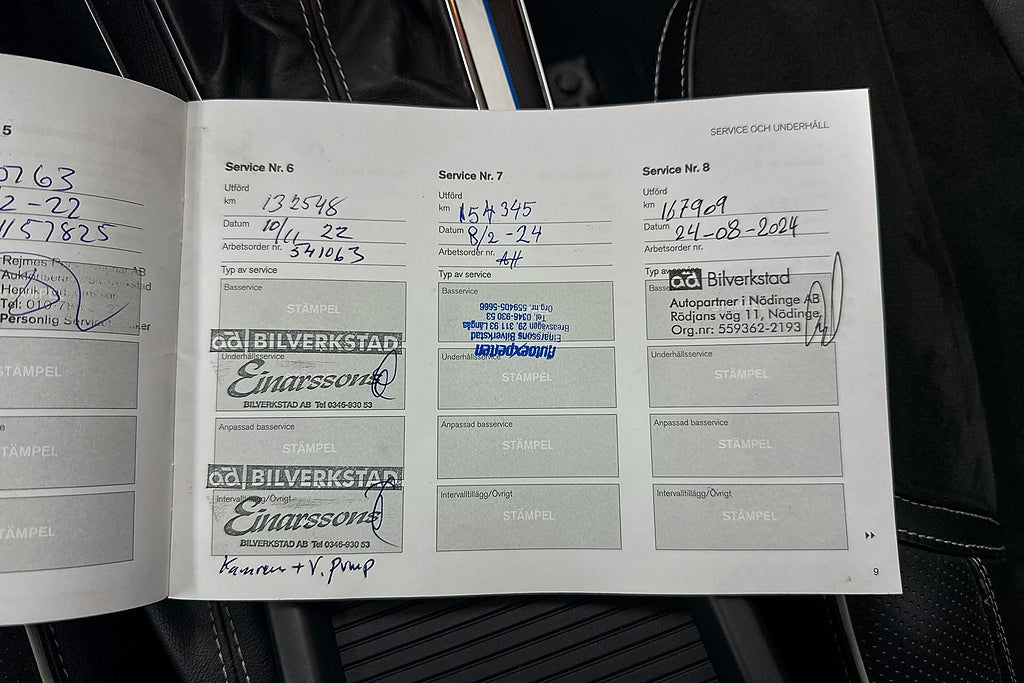 5
0763
2-22
1157825
Rejmes
AB
Henrik
Tel: 010-78
Personlig Service
STÄMPEL
STÄMPEL
STÄMPEL
SERVICE OCH UNDERHÅLL
Service Nr. 6
Utförd
km 132548
Datum 10/11 22
Arbetsorder nr. 541063
Typ av service
Basservice
STÄMPEL
ad BILVERKSTAD
Underhållsservice
Einarssons
BILVERKSTAD AB Tel 0346-930 53
Anpassad basservice
STÄMPEL
ad BILVERKSTAD
Intervalltillägg/Övrigt
Einarssons
BILVERKSTAD AB Tel 0346-930 53
Kamrem + V. pump
Service Nr. 7
Utförd
km 154345
Datum 8/2-24
Arbetsorder nr. AH
Typ av service
Basservice
Autoexperten
Einarssons Bilverkstad
Breasvägen 29, 311 93 Långås
Tel. 0346-930 53
Org.nr. 559405-5666
Underhållsservice
STÄMPEL
Anpassad basservice
STÄMPEL
Intervalltillägg/Övrigt
STÄMPEL
Service Nr. 8
Utförd
km 167909
Datum 24-08-2024
Arbetsorder nr.
Typ av service
ad Bilverkstad
Basse
Autopartner i Nödinge AB
Rödjans väg 11, Nödinge
Org.nr: 559362-2193
Underhållsservice
STÄMPEL
Anpassad basservice
STÄMPEL
Intervalltillägg/Övrigt
STÄMPEL
9